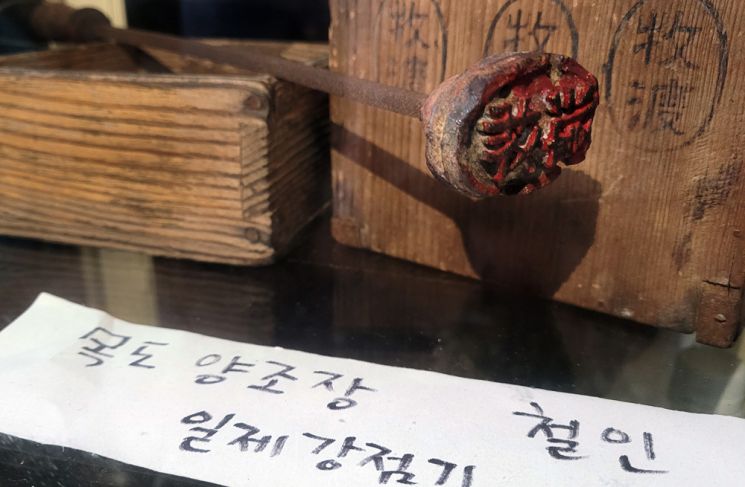 牧渡
牧
牧渡
목도 양조장
철인
일제강점기